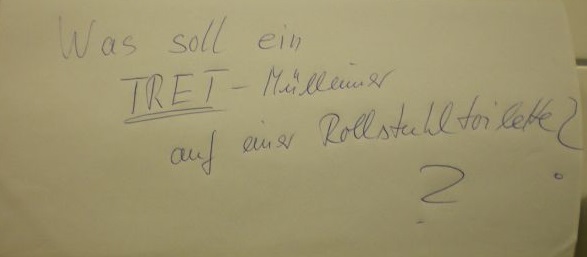 Was soll ein
TRET - Mülleimer
auf einer Rollstuhltoilette?
?